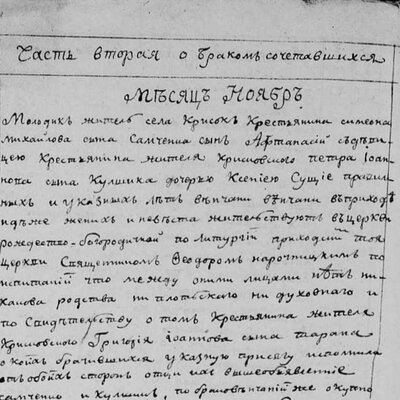 Часть вторая о бракомъ сочетавшихся
Мѣсяцъ Ноябрь
Молодикъ житель села Крисокъ Крестьянина симеона
михаилова сына Самченка сынъ Афтанасій съдѣви
цею Крестьянина жителя Крисковского петра Іоан
нова сына Кулшика дочерю Ксенією Сущіе правил
ныхъ и указныхъ лѣтъ вѣнчани вѣнчани въприходѣ
идѣже женихъ и невѣста жительствуютъ въцеркви
рождество-богородичной по литургіи приходскимъ тоя
церкви Священникомъ Феодоромъ нарочницкимъ по
испытаніи что между оними лицами нѣтъ ни
какова родства ни плотьского ни духовного и
по Свидѣтельству о томъ Крестьянина жителя
Крисковского Григорія Іоаннова сына тарана
о коихъ брачившихся указную присягу исполнили
отъ обоихъ сторонъ отци ихъ вышеобъявленіе
самченко и Кулшикъ, по браковѣнчаніи же окупно